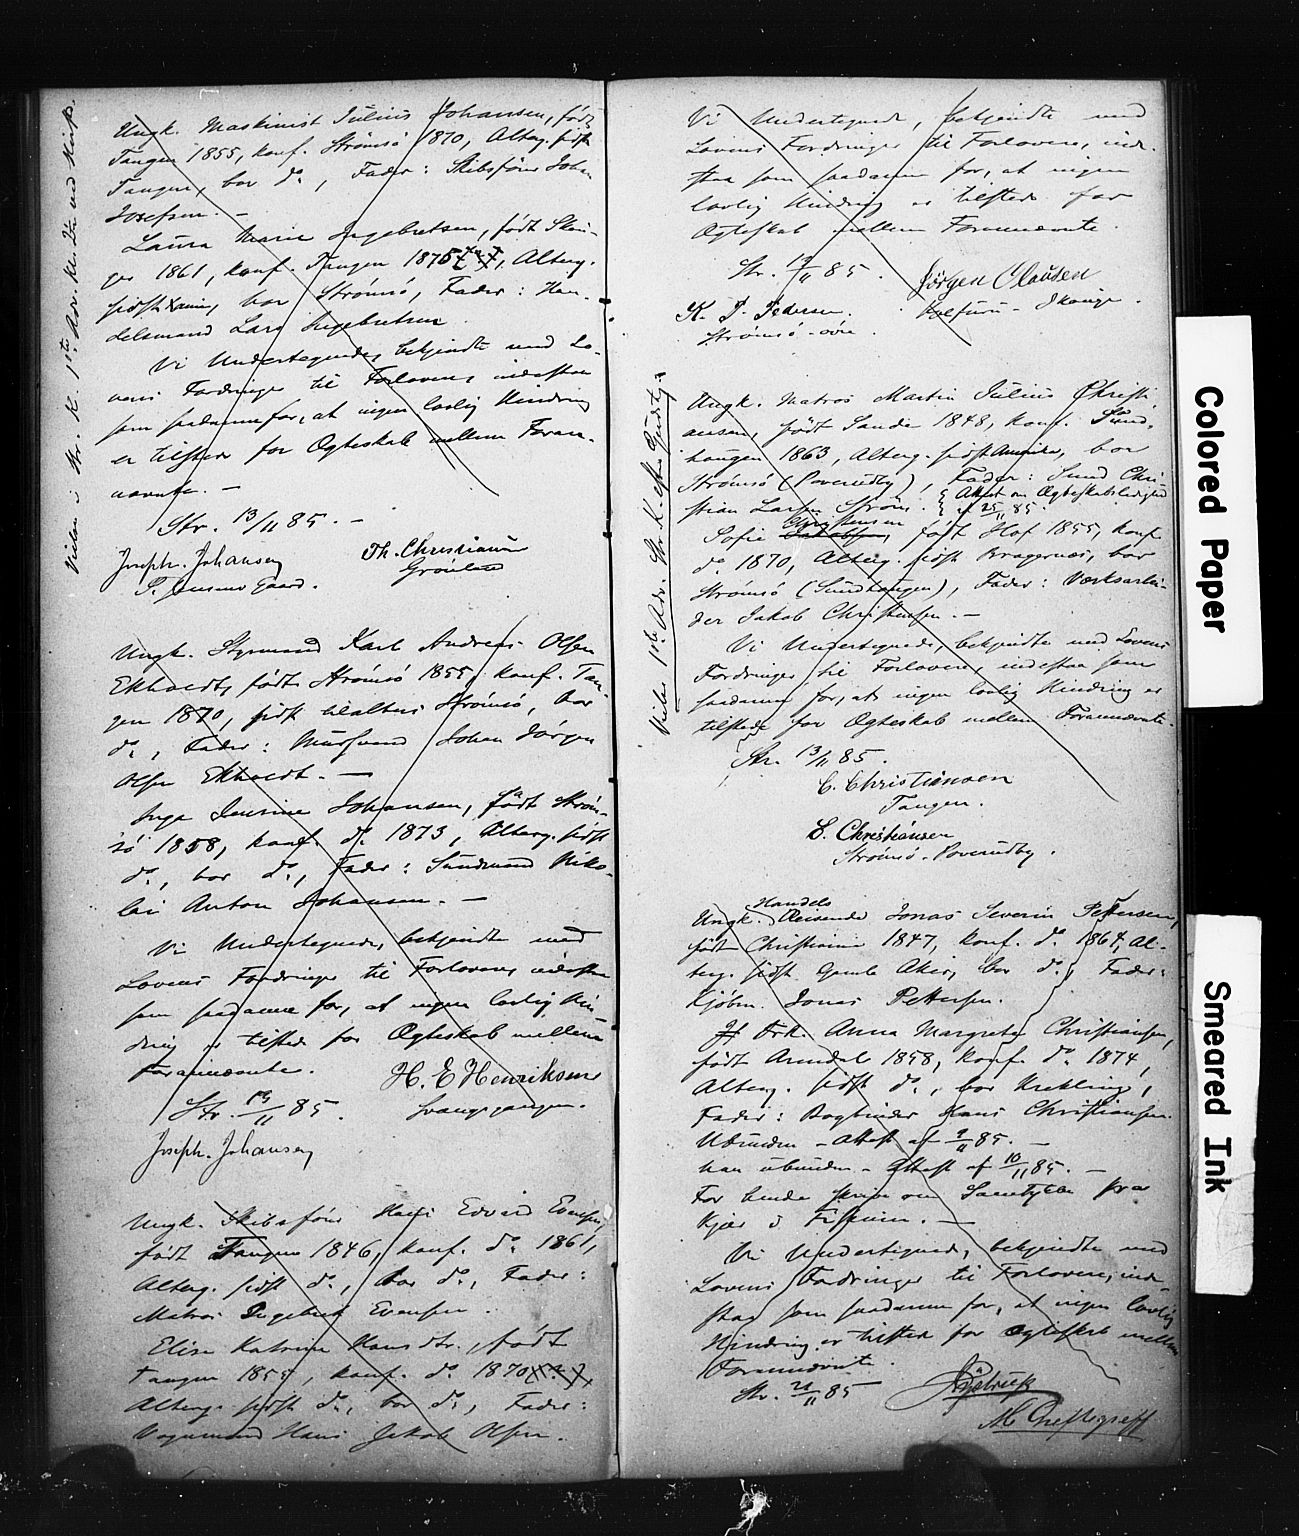 Vies i Str. K. 1ste Adv. Kl. ved Kirk.
Ungk. Maskinist Julius Johansen, født
Tangen 1855, konf. Strømsø 1870, Alterg. sidst
Tangen, bor do, Fader: Skibsfører Johan
Josefsen. —
Laura Marie Ingebretsen, født Skou-
ger 1861, konf. Tangen 1875, Alterg.
sidst bor Strømsø, Fader: Han-
delsmand Lars Ingebretsen
Vi Undertegnede, bekjendte med Lo-
vens Fordringer til Forlovere, indestaa
som saadanne for, at ingen lovlig Hindring
er tilstede for Ægteskab mellem Foran-
nævnte. —
Str. 13/11 85. —
Joseph. Johansen
Th. Christiansen
Grønland
P. Jensens Gaard.
Ungk. Styrmand Karl Andreas Olsen
Ekholdt, født Strømsø 1855, konf. Tan-
gen 1870, sidst tilalters Strømsø, bor
do, Fader: Murssvend Johan Jørgen
Olsen Ekholdt. —
Inga Johansen, født Strøm-
sø 1858, konf. do 1873, Alterg. sidst
do, bor do, Fader: Sundmand Niko-
lai Anton Johansen. —
Vi Undertegnede, bekjendte med
Lovens Fordringer til Forlovere, indestaa
som saadanne for, at ingen lovlig Hin-
dring er tilstede for Ægteskab mellem
Forannævnte.
H. E Henriksen
Svangsgangen.
Str. 13/11 85.
Joseph. Johansen
Ungk. Skibsfører Hans Edvard Evensen,
født Tangen 1846, konf. do 1861,
Alterg. sidst do, bor do, Fader:
Matros Ingebret Evensen.
Elise Katrine Hansdtr., født
Tangen 1855, konf. do 1870
Alterg. sidst do, bor do, Fader:
Vognmand Hans Jakob Olsen.
Vi Undertegnede, bekjendte med
Lovens Fordringer til Forlovere, inde-
staa som saadanne for, at ingen
lovlig Hindring er tilstede for
Ægteskab mellem Forannævnte.
Str. 13/11 85.
Jørgen Clausen
Skouger.
K. P. Pedersen.
Strømsø-øvre.
Vies 1ste Adv. Str. K. efter Gudstj.
Ungk. Matros Martin Julius Christi-
ansen, født Sande 1848, konf. Sund-
haugen 1863, Alterg. sidst Amerika, bor
Strømsø (Poverudby), Fader: Sund Chri-
stian Larsen Strøm. { Attest om Ægteskabsledighed
{ af 25/11 85.
Christensen
Sofie Jakobsen, født Hof 1855, konf.
do 1870, Alterg. sidst Bragernæs, bor
Strømsø (Sundhaugen), Fader: Værksarbei-
der Jakob Christensen. —
Vi Undertegnede, bekjendte med Lovens
Fordringer til Forlovere, indestaa som
saadanne for, at ingen lovlig Hindring er
tilstede for Ægteskab mellem Forannævnte.
Str. 13/11 85.
C. Christiansen
Tangen.
L. Christiansen
Strømsø-Poverudby.
Handels
Ungk. Reisende Jonas Severin Pettersen,
født Christiania 1847, konf. do 1864, Al-
terg. sidst Gamle Aker, bor do, Fader:
Kjøbm. Jonas Pettersen.
Jf Frk. Anna Margrete Christiansen,
født Arendal 1858, konf. do 1874,
Alterg. sidst do, bor Krekling,
Fader: Bogbinder Hans Christiansen
Ubunden – Attest af 9/11 85. —
han ubunden – Attest af 10/11 85. —
For hende skriv om Samtykke fra
Kjær i —
Vi Undertegnede, bekjendte med
Lovens Fordringer til Forlovere, inde-
staa som saadanne for, at ingen lovlig
Hindring er tilstede for Ægteskab mellem
Forannævnte.
Str. 21/11 85
Colored Paper
Smeared Ink